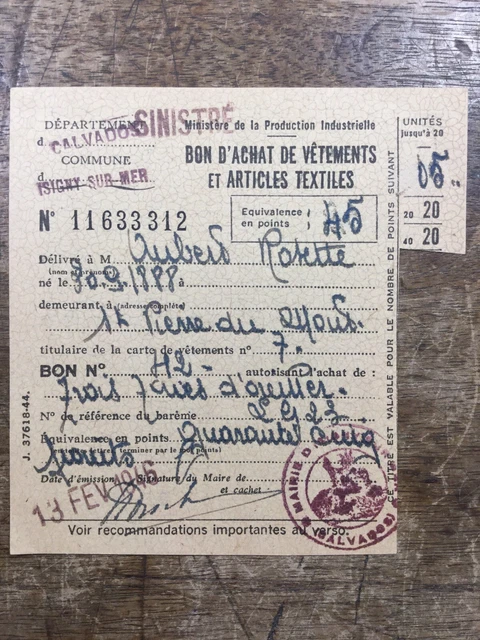 DÉPARTEMENT
d
CALVADOS
SINISTRÉ
COMMUNE
d
ISIGNY-SUR-MER
Ministère de la Production Industrielle
BON D'ACHAT DE VÊTEMENTS
ET ARTICLES TEXTILES
N° 11633312
Equivalence
en points : 45
Délivré à M Aubert Rosette
(nom et prénoms)
né le 30.9.1888 à
demeurant à (adresse complète)
St Pierre du Mont.
titulaire de la carte de vêtements n° 7.
BON N° H2- autorisant l'achat de :
Trois taies d'oreiller.
N° de référence du barème
Equivalence en points Quarante Cinq
(en toutes lettres, terminer par le mot points)
points
Date d'émission Signature du Maire de
et cachet
13 FEV 1946
MAIRIE D
CALVADOS
Voir recommandations importantes au verso.
J. 37618-44.
UNITÉS
jusqu'à 20
05
20 20
40 20
CE TITRE EST VALABLE POUR LE NOMBRE DE POINTS SUIVANT